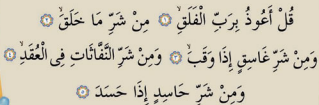 قُلْ أَعُوذُ بِرَبِّ الْفَلَقِ ۝١ مِنْ شَرِّ مَا خَلَقَ ۝٢
وَمِنْ شَرِّ غَاسِقٍ إِذَا وَقَبَ ۝٣ وَمِنْ شَرِّ النَّفَّاثَاتِ فِى الْعُقَدِ ۝٤
وَمِنْ شَرِّ حَاسِدٍ إِذَا حَسَدَ ۝٥